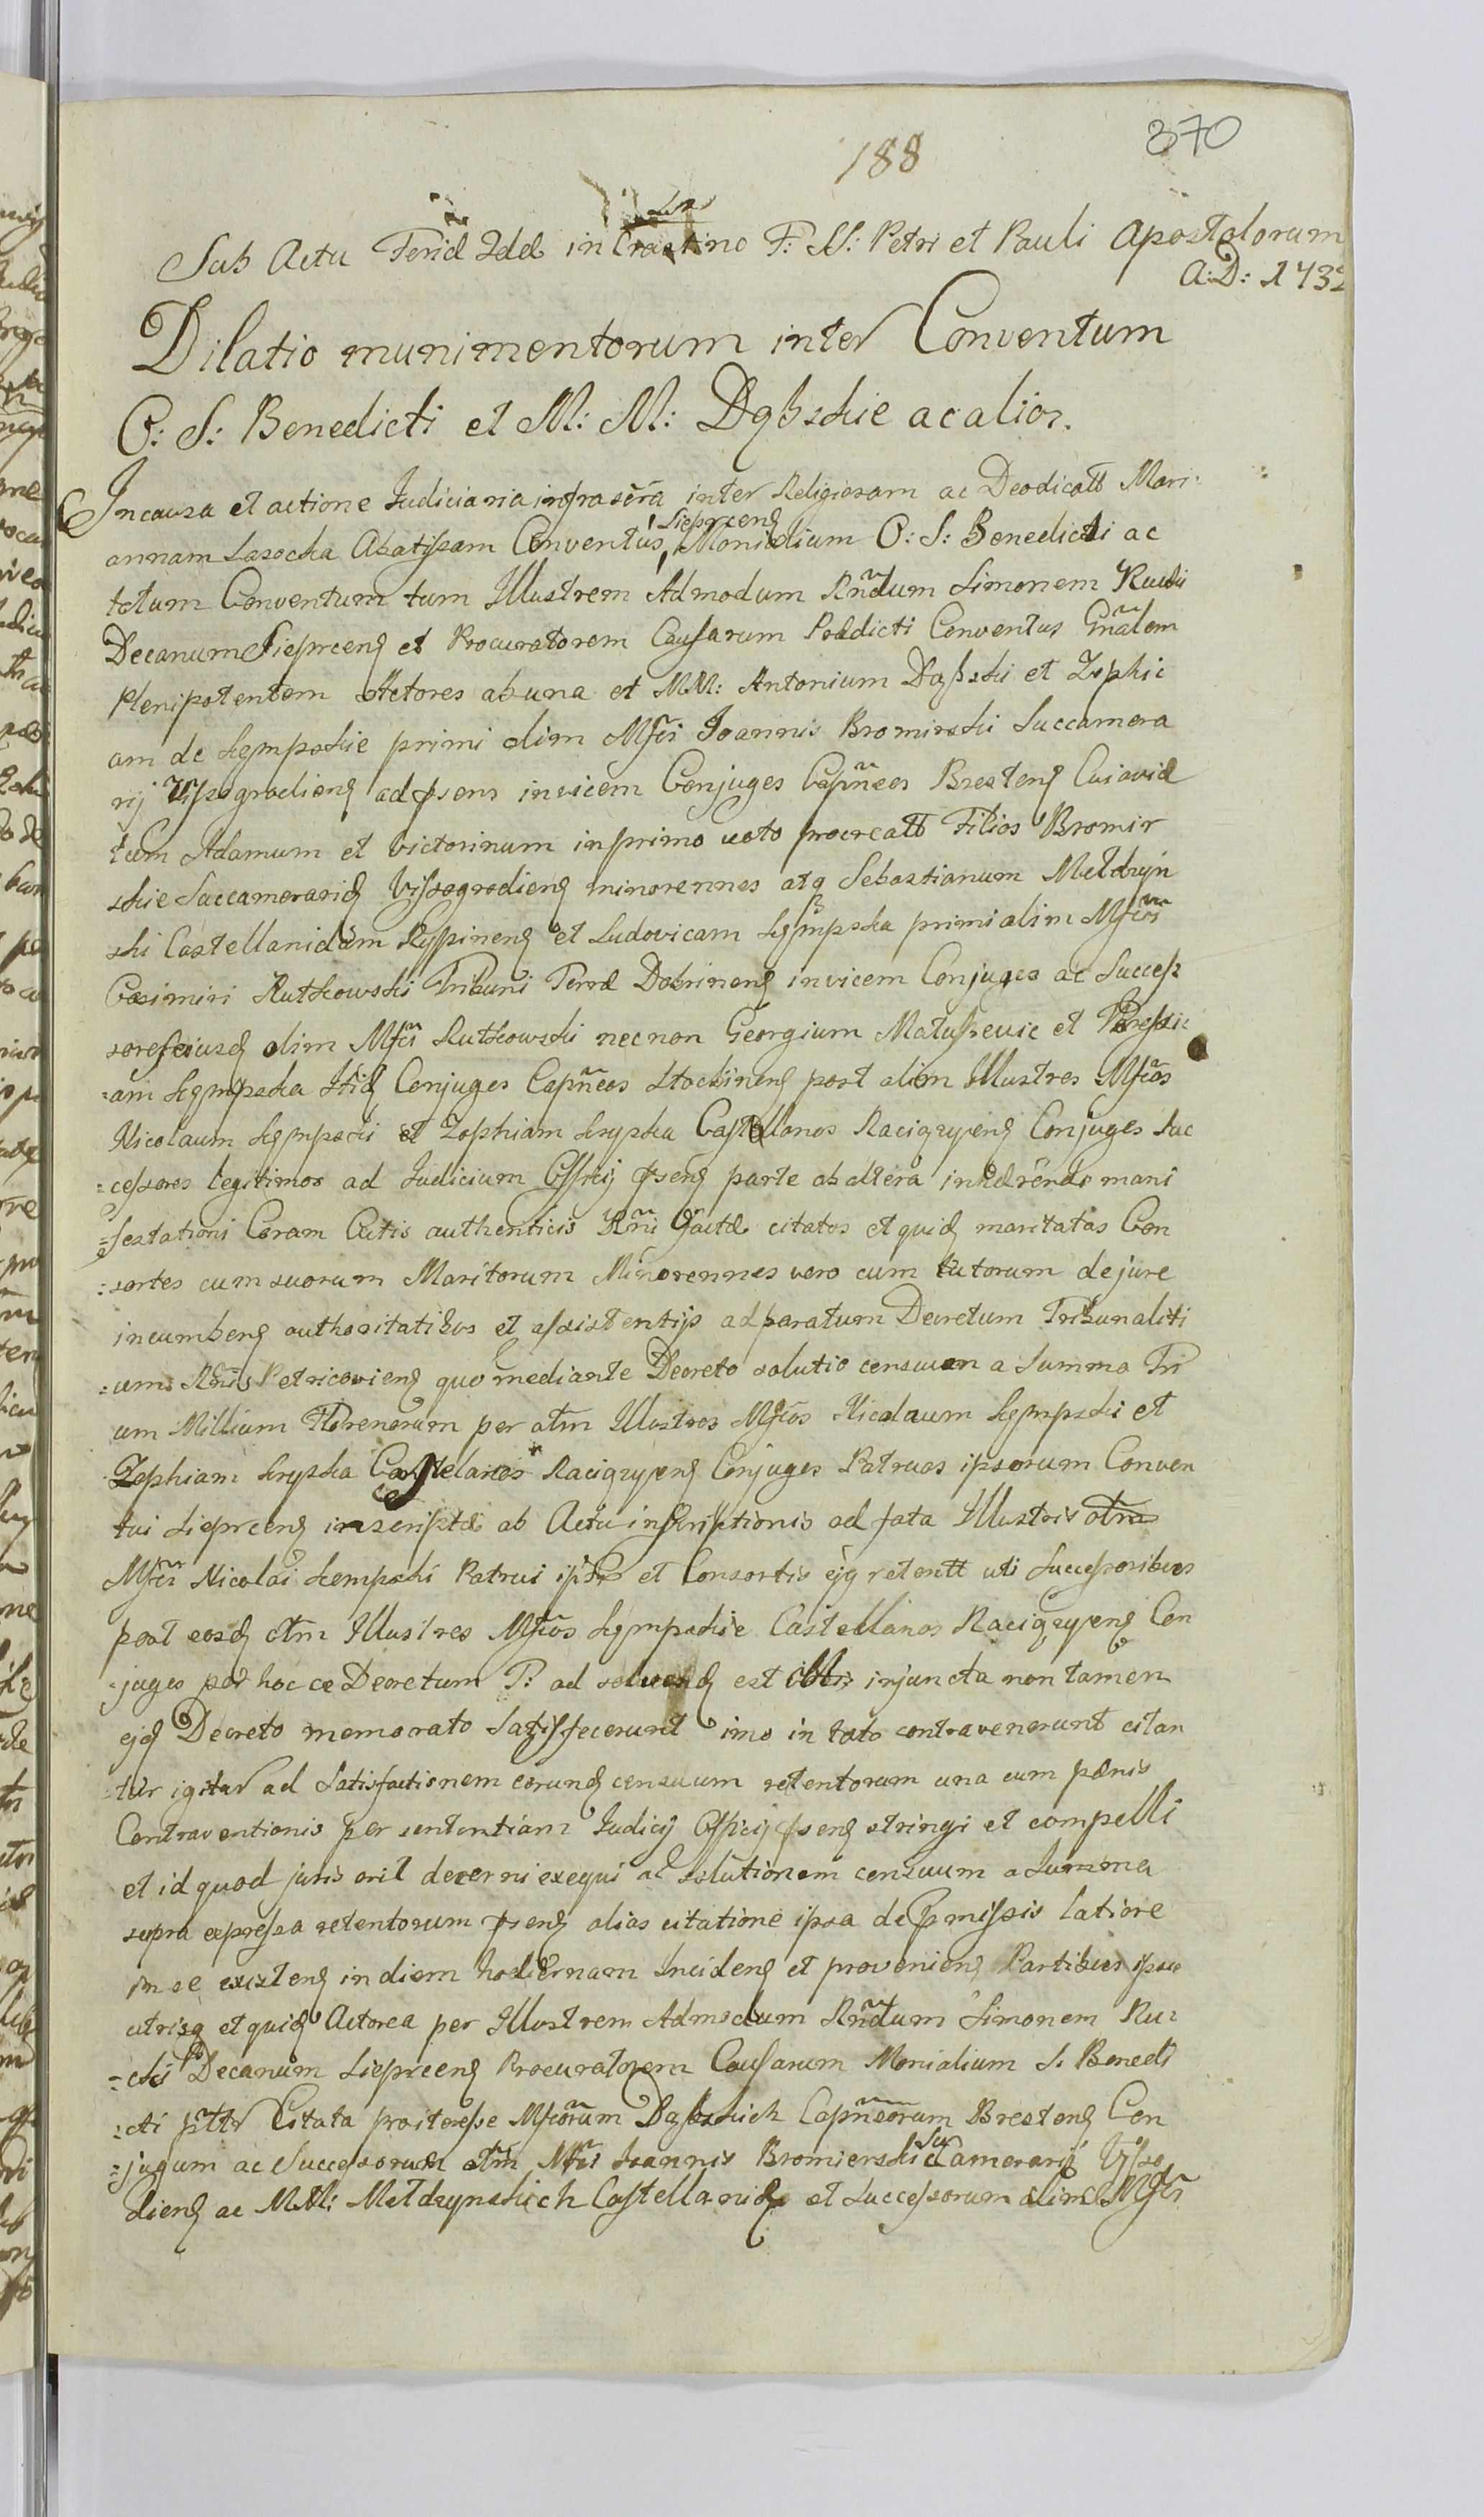 188
370
Sub Actu Feriæ 2dæ in Crastino F: S: Petri et Pauli Apostolorum
A:D: 1732
Dilatio munimentorum inter Conventum
O: S: Benedicti et M: M: Dąbskie ac alios.
In causa et actione Judiciaria infrascr̃a inter Religiosam ac Deodicatt Mari
annam Lasocka Abatissam Conventus Sieprceng Monialium O: S: Benedicti ac
totum Conventum tum Illustrem Admodum Rñdum Simonem Rucki
Decanum Sieprceng et Procuratorem Causarum Prædicti Conventus Gñalem
Plenipotentem Actores ab una et MM: Antonium Dąbski et Zophi
am de Sęmpskie primi olim Mfci Joannis Bromirski Succamera
rij Vissogrodieng ad psens invicem Conjuges Capñeos Bresteng Cuiaviæ
tum Adamum et Victorinum in primo voto procreatt Filios Bromir
skie Succamerarid Vissogrodieng minorennes atq Sebastianum Mełdzyń
ski Castellanidam Rypineng et Ludovicam Sęmpska primi olim Mfci
Casimiri Rutkowski Tribuni Terræ Dobrineng invicem Conjuges ac Succes
sores eiusd olim Mfci Rutkowski nec non Georgium Matuszevic et Theressi
am Sęmpska Itid Conjuges Capñeos Stockineng post olim Illustres Mfcos
Nicolaum Sęmpski et Zophiam Krypska Castellanos Raciązyeng Conjuges Suc
=cessores legitimos ad Judicium Officij pseng parte ab altera inhærendo mani
=festationi Coram Actis authenticis Rñi factæ citatos et quid maritatas Con
=sortes cum suorum Maritorum Minorennes vero cum tutorum de jure
incumbeng authoritatibus et assistentijs ad paratum Decretum Tribunaliti
=um Petricovieng quo mediante Decreto solutio censuum a Summa Tri
um Millium Florenorum per olm Illustres Mfcos Nicolaum Sęmpski et
Zophiam Krypska Castelanos Raciązyeng Conjuges Patruos ipsorum Conven
tui Sieprceng inscriptæ ab Actu inscriptionis ad fata Illustris olm
Mfci Nicolai Sempski Patrui et Consortis ejq retentt uti Successoribus
post eosd olm Illustres Mfcos Sęmpskie Castellanos Raciązyeng Con
juges per hocce Decretum T: ad solvend est illis injuncta non tamen
ejd Decreto memorato Satisfecerunt imo in toto contravenerunt citan
=tur igitur ad Satisfactionem eorund censuum retentorum una cum pænis
Contraventionis per sententiam Judicij Officij pseng stringi et compelli
et id quod juris erit decerni exequi ac solutionem censuum a Summa
supra expressa retentorum pseng alias citatione ipsa de pmissis latiore
in se existeng in diem hodiernam Incideng et provenieng Partibus ipsis
utrisq et quid Actorea per Illustrem Admodum Rñdum Simonem Ru=
=cki Decanum Sieprceng Procuratorem Causarum Monialium S. Benedi
=cti Citata pro interesse Mfcorum Dąbskich Capñeorum Bresteng Con
=jugum ac Successorum olm Mfci Joannis Bromierski Succamerarij Visso
dieng ac MM: Mełdzynskich Castellanid et Successorum olim Mfci